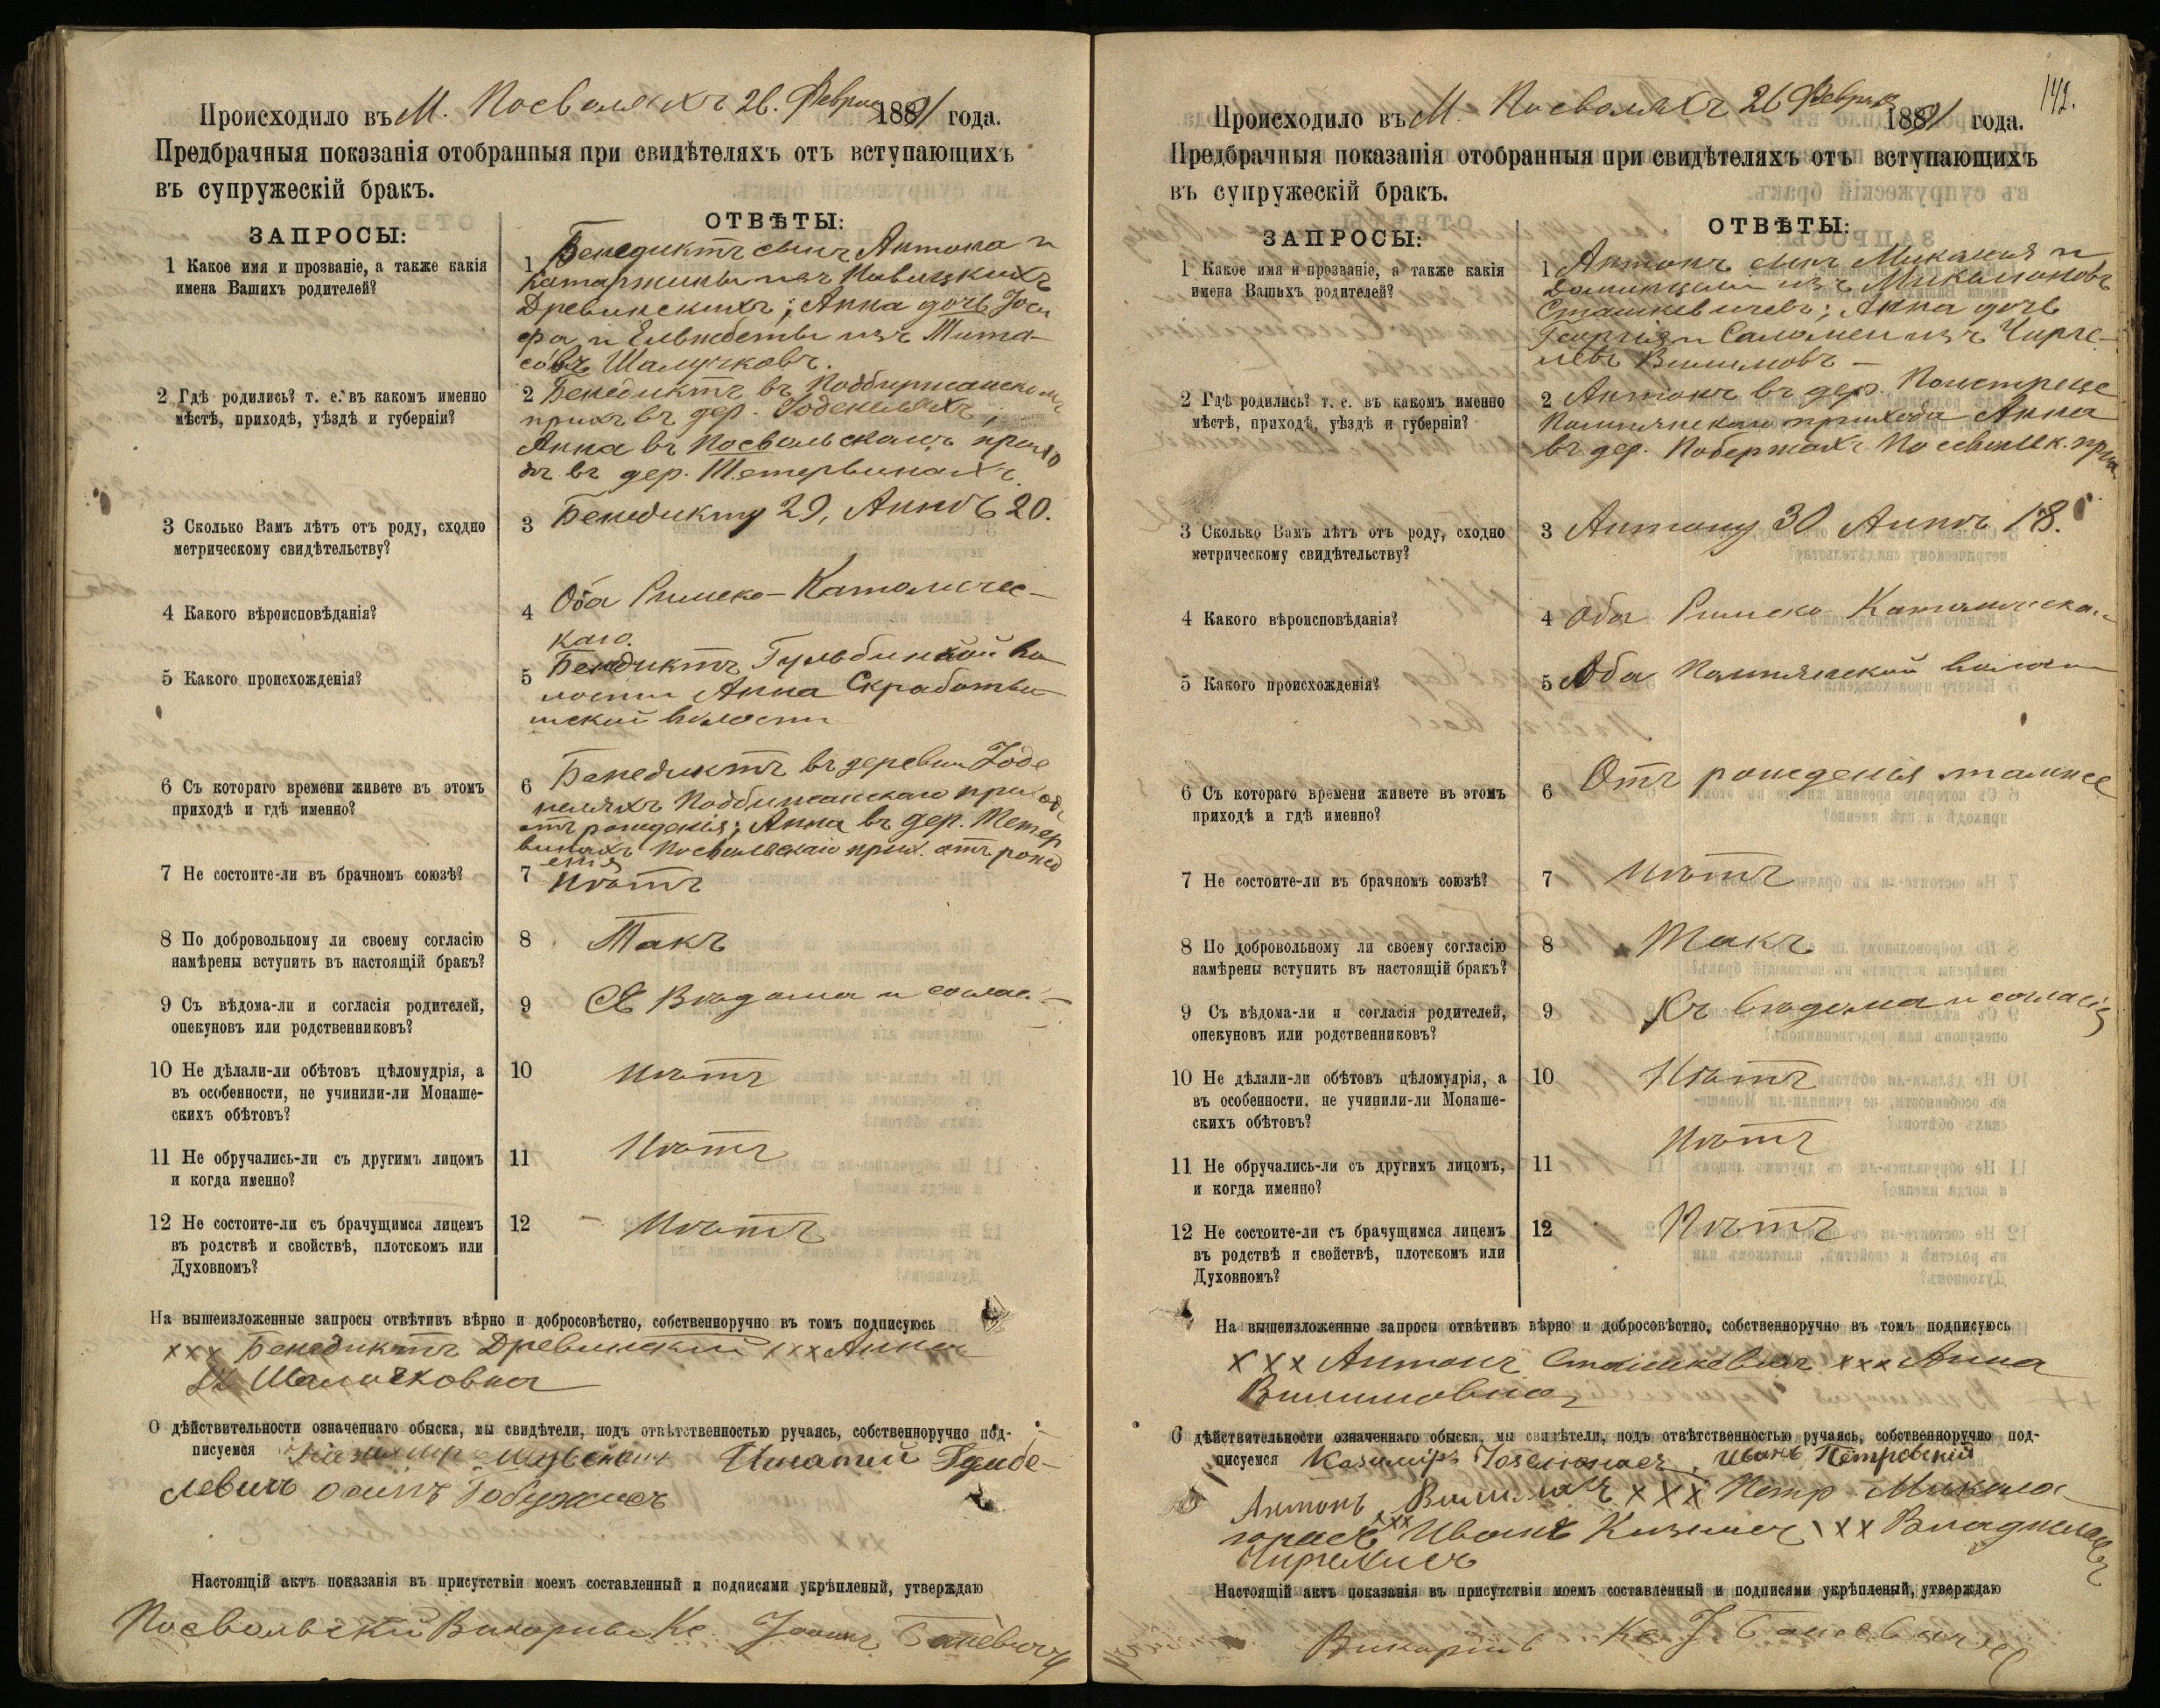 Происходило въ М. Посволяхъ 26. Февраля 1891 года.
Предбрачныя показанія отобранныя при свидѣтеляхъ отъ вступающихъ
въ супружескій бракъ.
ЗАПРОСЫ:
ОТВѢТЫ:
1 Какое имя и прозваніе, а также какія
имена Вашихъ родителей?
1 Бенедиктъ сынъ Антона и
Катаржины изъ Новицкихъ
Древинскихъ; Анна дочь Іоси
фа и Ельжбеты изъ Тита-
совъ Шалучковъ.
2 Гдѣ родились? т. е. въ какомъ именно
мѣстѣ, приходѣ, уѣздѣ и губерніи?
2 Бенедиктъ въ Поддбиржанскомъ
прих въ дер. Іоденеляхъ,
Анна въ Посвольскомъ прихо
дѣ въ дер. Тетервинахъ.
3 Сколько Вамъ лѣтъ отъ роду, сходно
метрическому свидѣтельству?
3 Бенедикту 29, Аннѣ 20.
4 Какого вѣроисповѣданія?
4 Оба Римско-Католичес-
каго.
5 Какого происхожденія?
5 Бенедиктъ Гульбинской во
лости Анна Скработы
шской волости
6 Съ котораго времени живете въ этомъ
приходѣ и гдѣ именно?
6 Бенедиктъ въ деревни Іоде
неляхъ Поддбижанскаго приход
отъ рожденія; Анна въ дер. Тетер
винахъ Посвольскаго прих. отъ рожд
енія
7 Не состоите-ли въ брачномъ союзѣ?
7 Нѣтъ
8 По добровольному ли своему согласію
намѣрены вступить въ настоящій бракъ?
8 Такъ
9 Съ вѣдома-ли и согласія родителей,
опекуновъ или родственниковъ?
9 Съ Вѣдома и соглас.
10 Не дѣлали-ли обѣтовъ цѣломудрія, а
въ особенности, не учинили-ли Монаше-
скихъ обѣтовъ?
10 Нѣтъ
11 Не обручались-ли съ другимъ лицомъ
и когда именно?
11 Нѣтъ
12 Не состоите-ли съ брачущимся лицемъ
въ родствѣ и свойствѣ, плотскомъ или
Духовномъ?
12 - Нѣтъ
На вышеизложенные запросы отвѣтивъ вѣрно и добросовѣстно, собственноручно въ томъ подписуюсь
xxx Бенедиктъ Древинскій xxx Анна
Шалучковна
О дѣйствительности означеннаго обыска, мы свидѣтели, подъ отвѣтственностью ручаясь, собственноручно под-
писуемся Игнатій Гумбе-
левичъ Осипъ
Настоящій актъ показанія въ присутствіи моемъ составленный и подписями укрѣпленый, утверждаю
Посвольскій Викарный Кс. Іоанъ
142.
Происходило въ М. Посволяхъ 26 Февраля 1891 года.
Предбрачныя показанія отобранныя при свидѣтеляхъ отъ вступающихъ
въ супружескій бракъ.
ЗАПРОСЫ:
ОТВѢТЫ:
1 Какое имя и прозваніе, а также какія
имена Вашихъ родителей?
1 Антонъ сынъ Михаила и
Доминцели изъ Микалюновъ
Сташкевичевъ; Анна дочь
Георгія и Саломеи изъ Чирге-
левъ Вилимовъ -
2 Гдѣ родились? т. е. въ какомъ именно
мѣстѣ, приходѣ, уѣздѣ и губерніи?
2 Антонъ въ дер.
прихода Анна
въ дер. Побержахъ Посвольск. прих
3 Сколько Вамъ лѣтъ отъ роду, сходно
метрическому свидѣтельству?
3 Антону 30 Аннѣ 18.
4 Какого вѣроисповѣданія?
4 Оба Римско Католическаг
5 Какого происхожденія?
5 Оба волости
6 Съ котораго времени живете въ этомъ
приходѣ и гдѣ именно?
6 Отъ рожденія тамже
7 Не состоите-ли въ брачномъ союзѣ?
7 Нѣтъ
8 По добровольному ли своему согласію
намѣрены вступить въ настоящій бракъ?
8 Такъ
9 Съ вѣдома-ли и согласія родителей,
опекуновъ или родственниковъ?
9 Съ вѣдома и согласія
10 Не дѣлали-ли обѣтовъ цѣломудрія, а
въ особенности. не учинили-ли Монаше-
скихъ обѣтовъ?
10 Нѣтъ
11 Не обручались-ли съ другимъ лицомъ,
и когда именно?
11 Нѣтъ
12 Не состоите-ли съ брачущимся лицемъ
въ родствѣ и свойствѣ, плотскомъ или
Духовномъ?
12 Нѣтъ
На вышеизложенные запросы отвѣтивъ вѣрно и добросовѣстно, собственноручно въ томъ подписуюсь
xxx Антонъ Сташкевичъ xxx Анна
Вилимовна
О дѣйствительности означеннаго обыска, мы свидѣтели, подъ отвѣтственностью ручаясь, собственноручно под-
писуемся Казимиръ Иванъ Петровскій
Антонъ Вилимасъ xxx Петр Микало-
xxx Иванъ xxx Владиславъ
Чиргелисъ
Настоящій актъ показанія въ присутствіи моемъ составленный и подписями укрѣпленый, утверждаю
Викарный Кс. І.